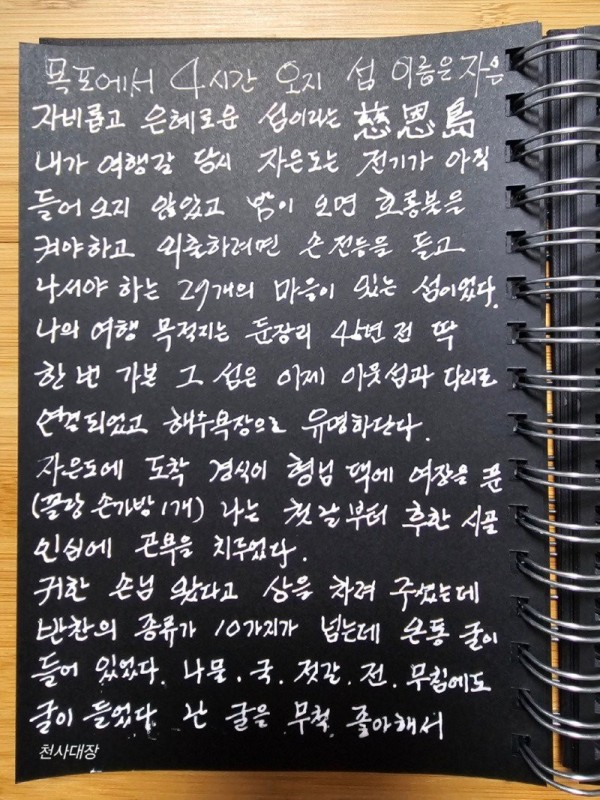 목포에서 4시간 오지 섬 이름은 자은
자비롭고 은혜로운 섬이라는 慈恩島
내가 여행갈 당시 자은도는 전기가 아직
들어 오지 않았고 밤이 오면 호롱불을
켜야하고 외출하려면 손전등을 들고
나서야 하는 29개의 마을이 있는 섬이었다.
나의 여행 목적지는 둔장리 45년 전 딱
한 번 가본 그 섬은 이제 이웃섬과 다리로
연결되었고 해수욕장으로 유명하단다.
자은도에 도착 경식이 형님 댁에 여장을 푼
(끝랑 손가방 1개) 나는 첫날부터 후한 시골
인심에 곤욕을 치루었다.
귀한 손님 왔다고 상을 차려 주셨는데
반찬의 종류가 10가지가 넘는데 온통 굴이
들어 있었다. 나물. 국. 젓갈. 전. 무침에도
굴이 들었다. 난 굴을 무척 좋아해서
천사대장